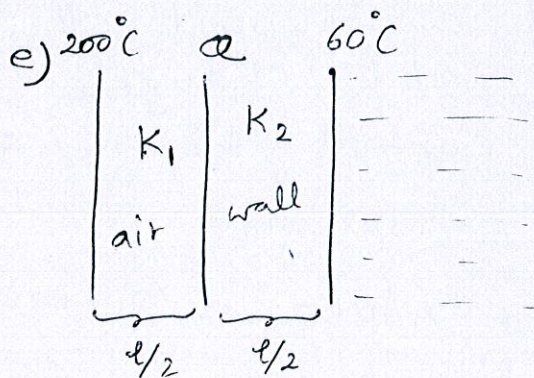 e) 200°C a 60°C
K₁ K₂
air wall
l/2 l/2